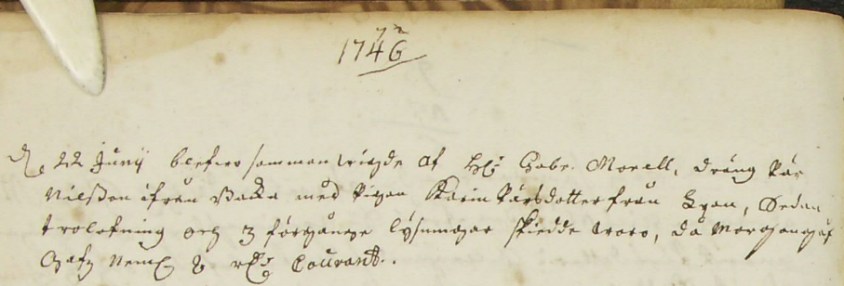 1746
D. 22 Junij blefwo sammanwigde af H: Gabr. Morell, dräng Pär
Nilsson ifrån Backa med Pigan Karin Pärsdotter från Byan, Sedan
trolofning och 3 förgångne lysningar skiedde woro, då Morgongåf
Gafz Neml 8 rd: Courant.